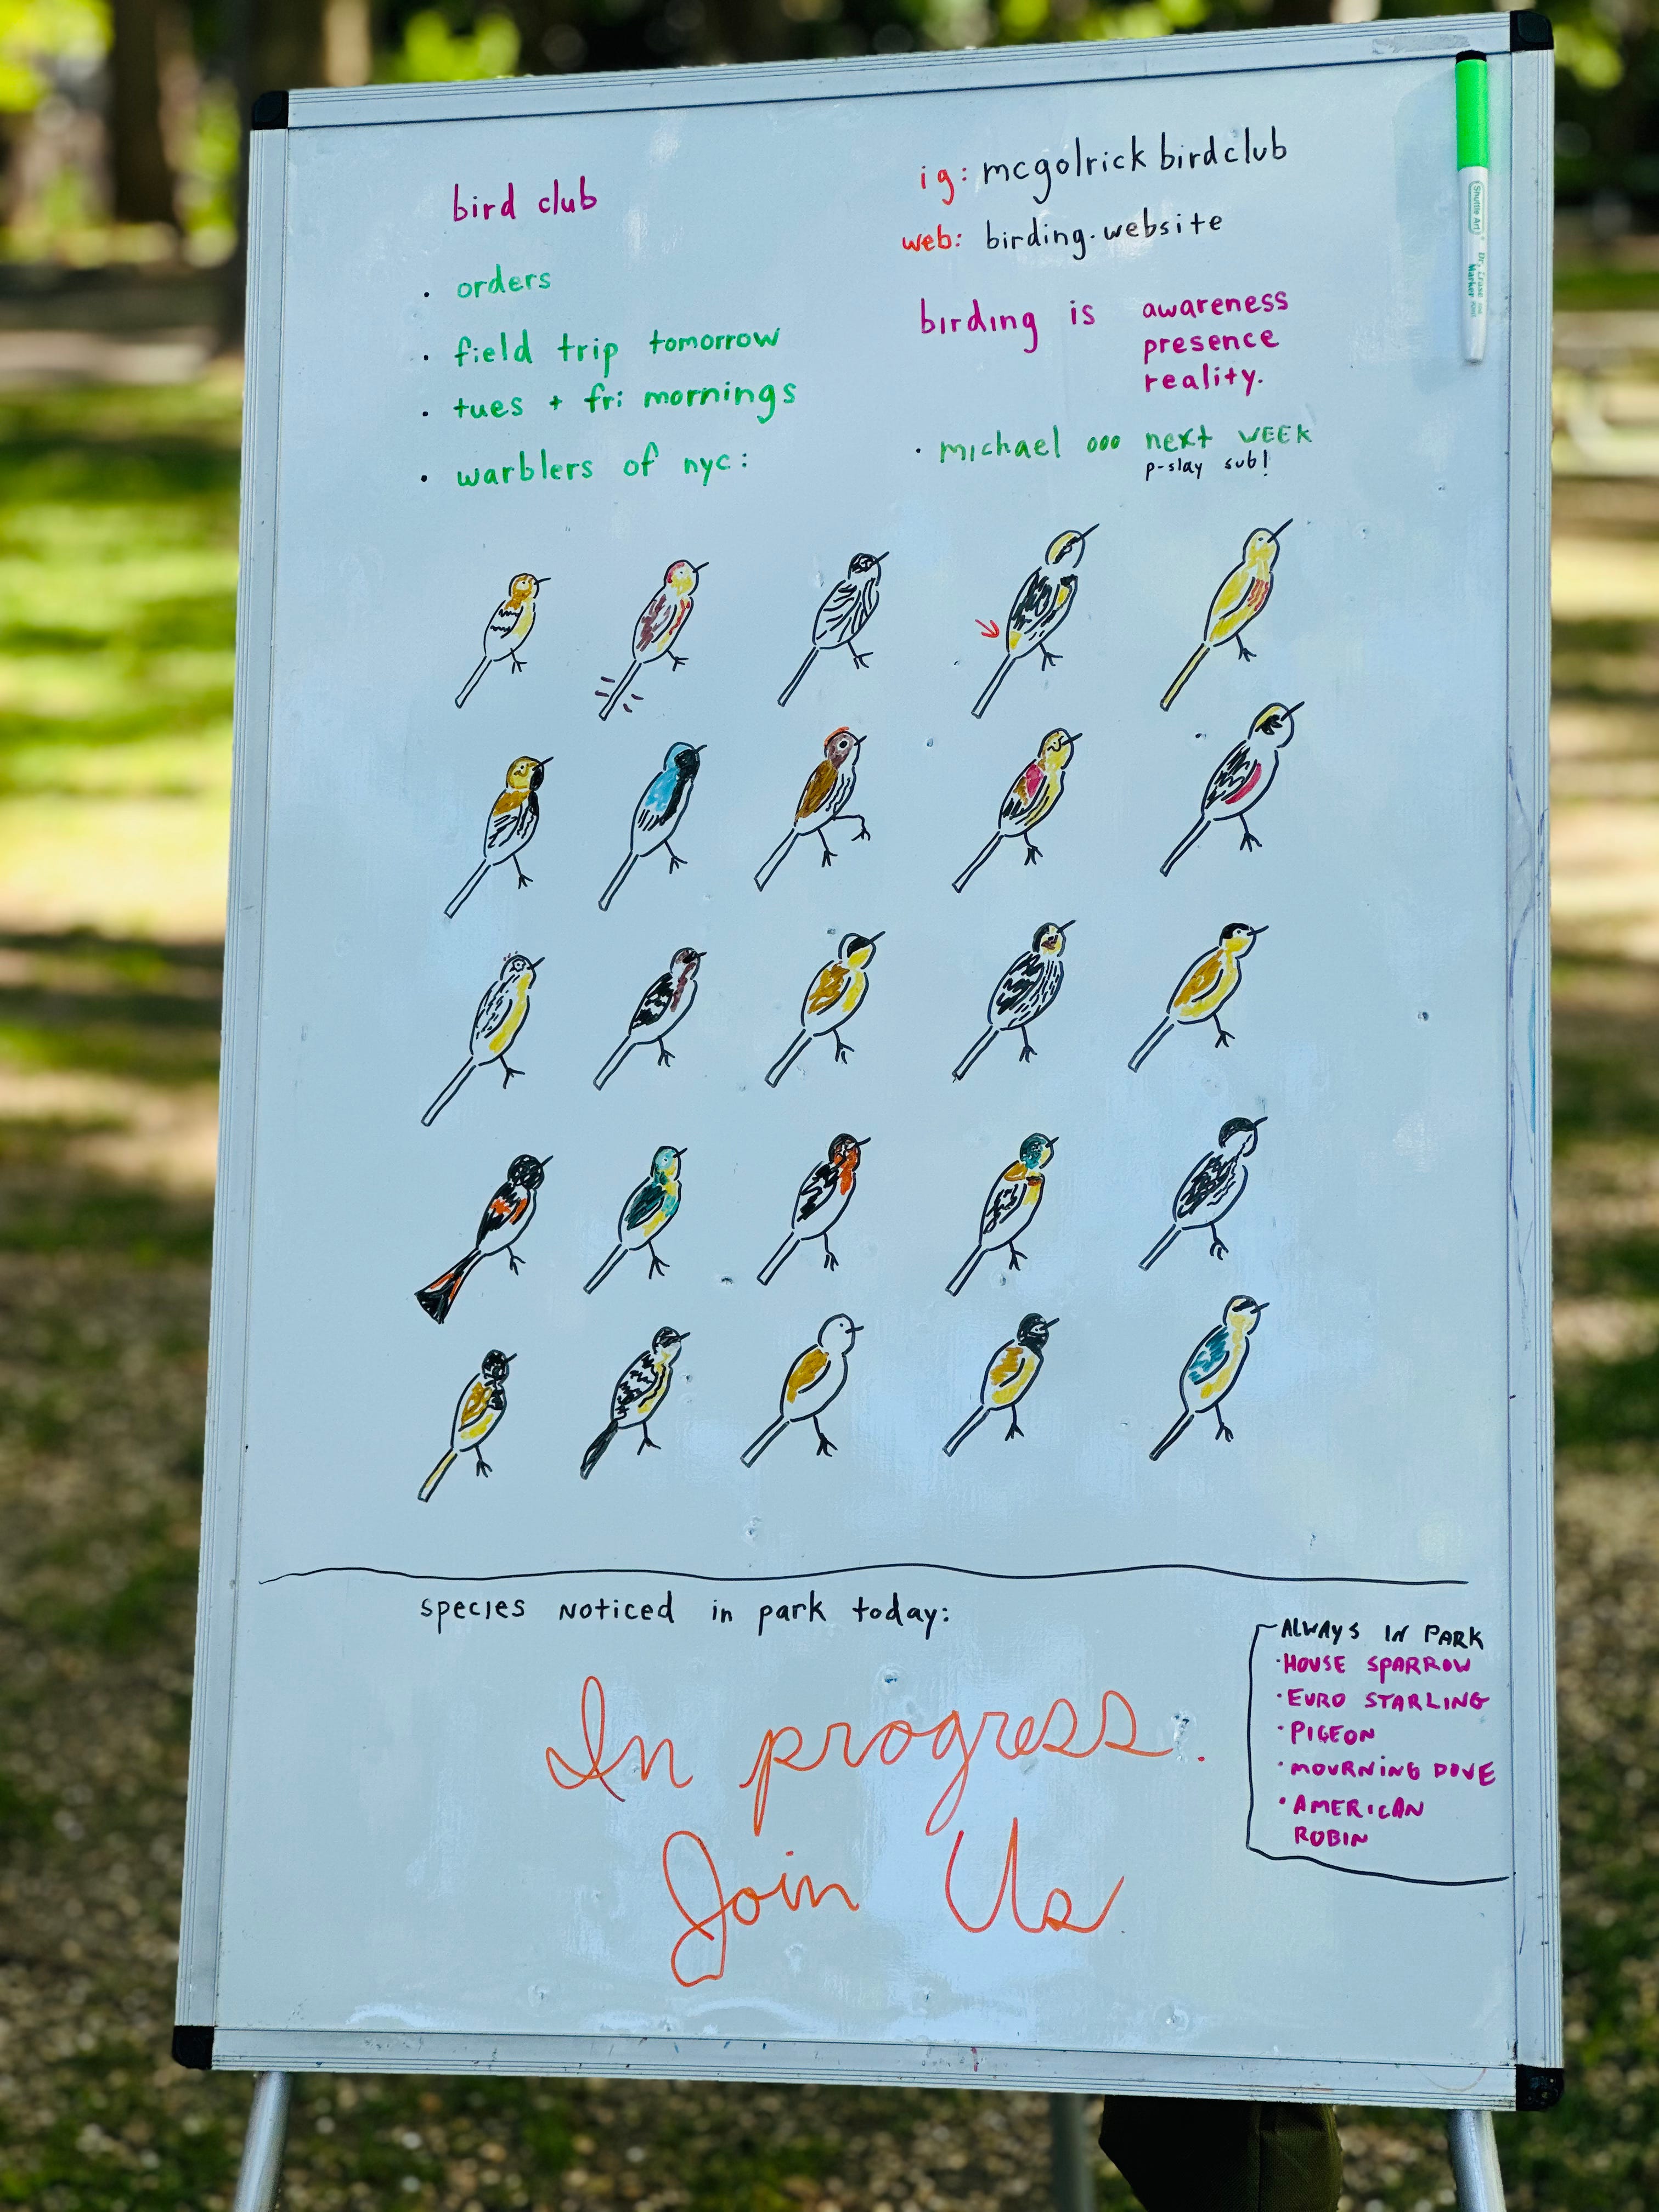 bird club
• orders
• field trip tomorrow
• tues + fri mornings
• warblers of nyc:
ig: mcgolrick birdclub
web: birding.website
birding is awareness
presence
reality.
• michael ooo next WEEK
p-slay sub!
species noticed in park today:
In progress.
Join Us
ALWAYS IN PARK
• HOUSE SPARROW
• EURO STARLING
• PIGEON
• MOURNING DOVE
• AMERICAN
ROBIN
Shuttle Art
Dry Erase
Marker